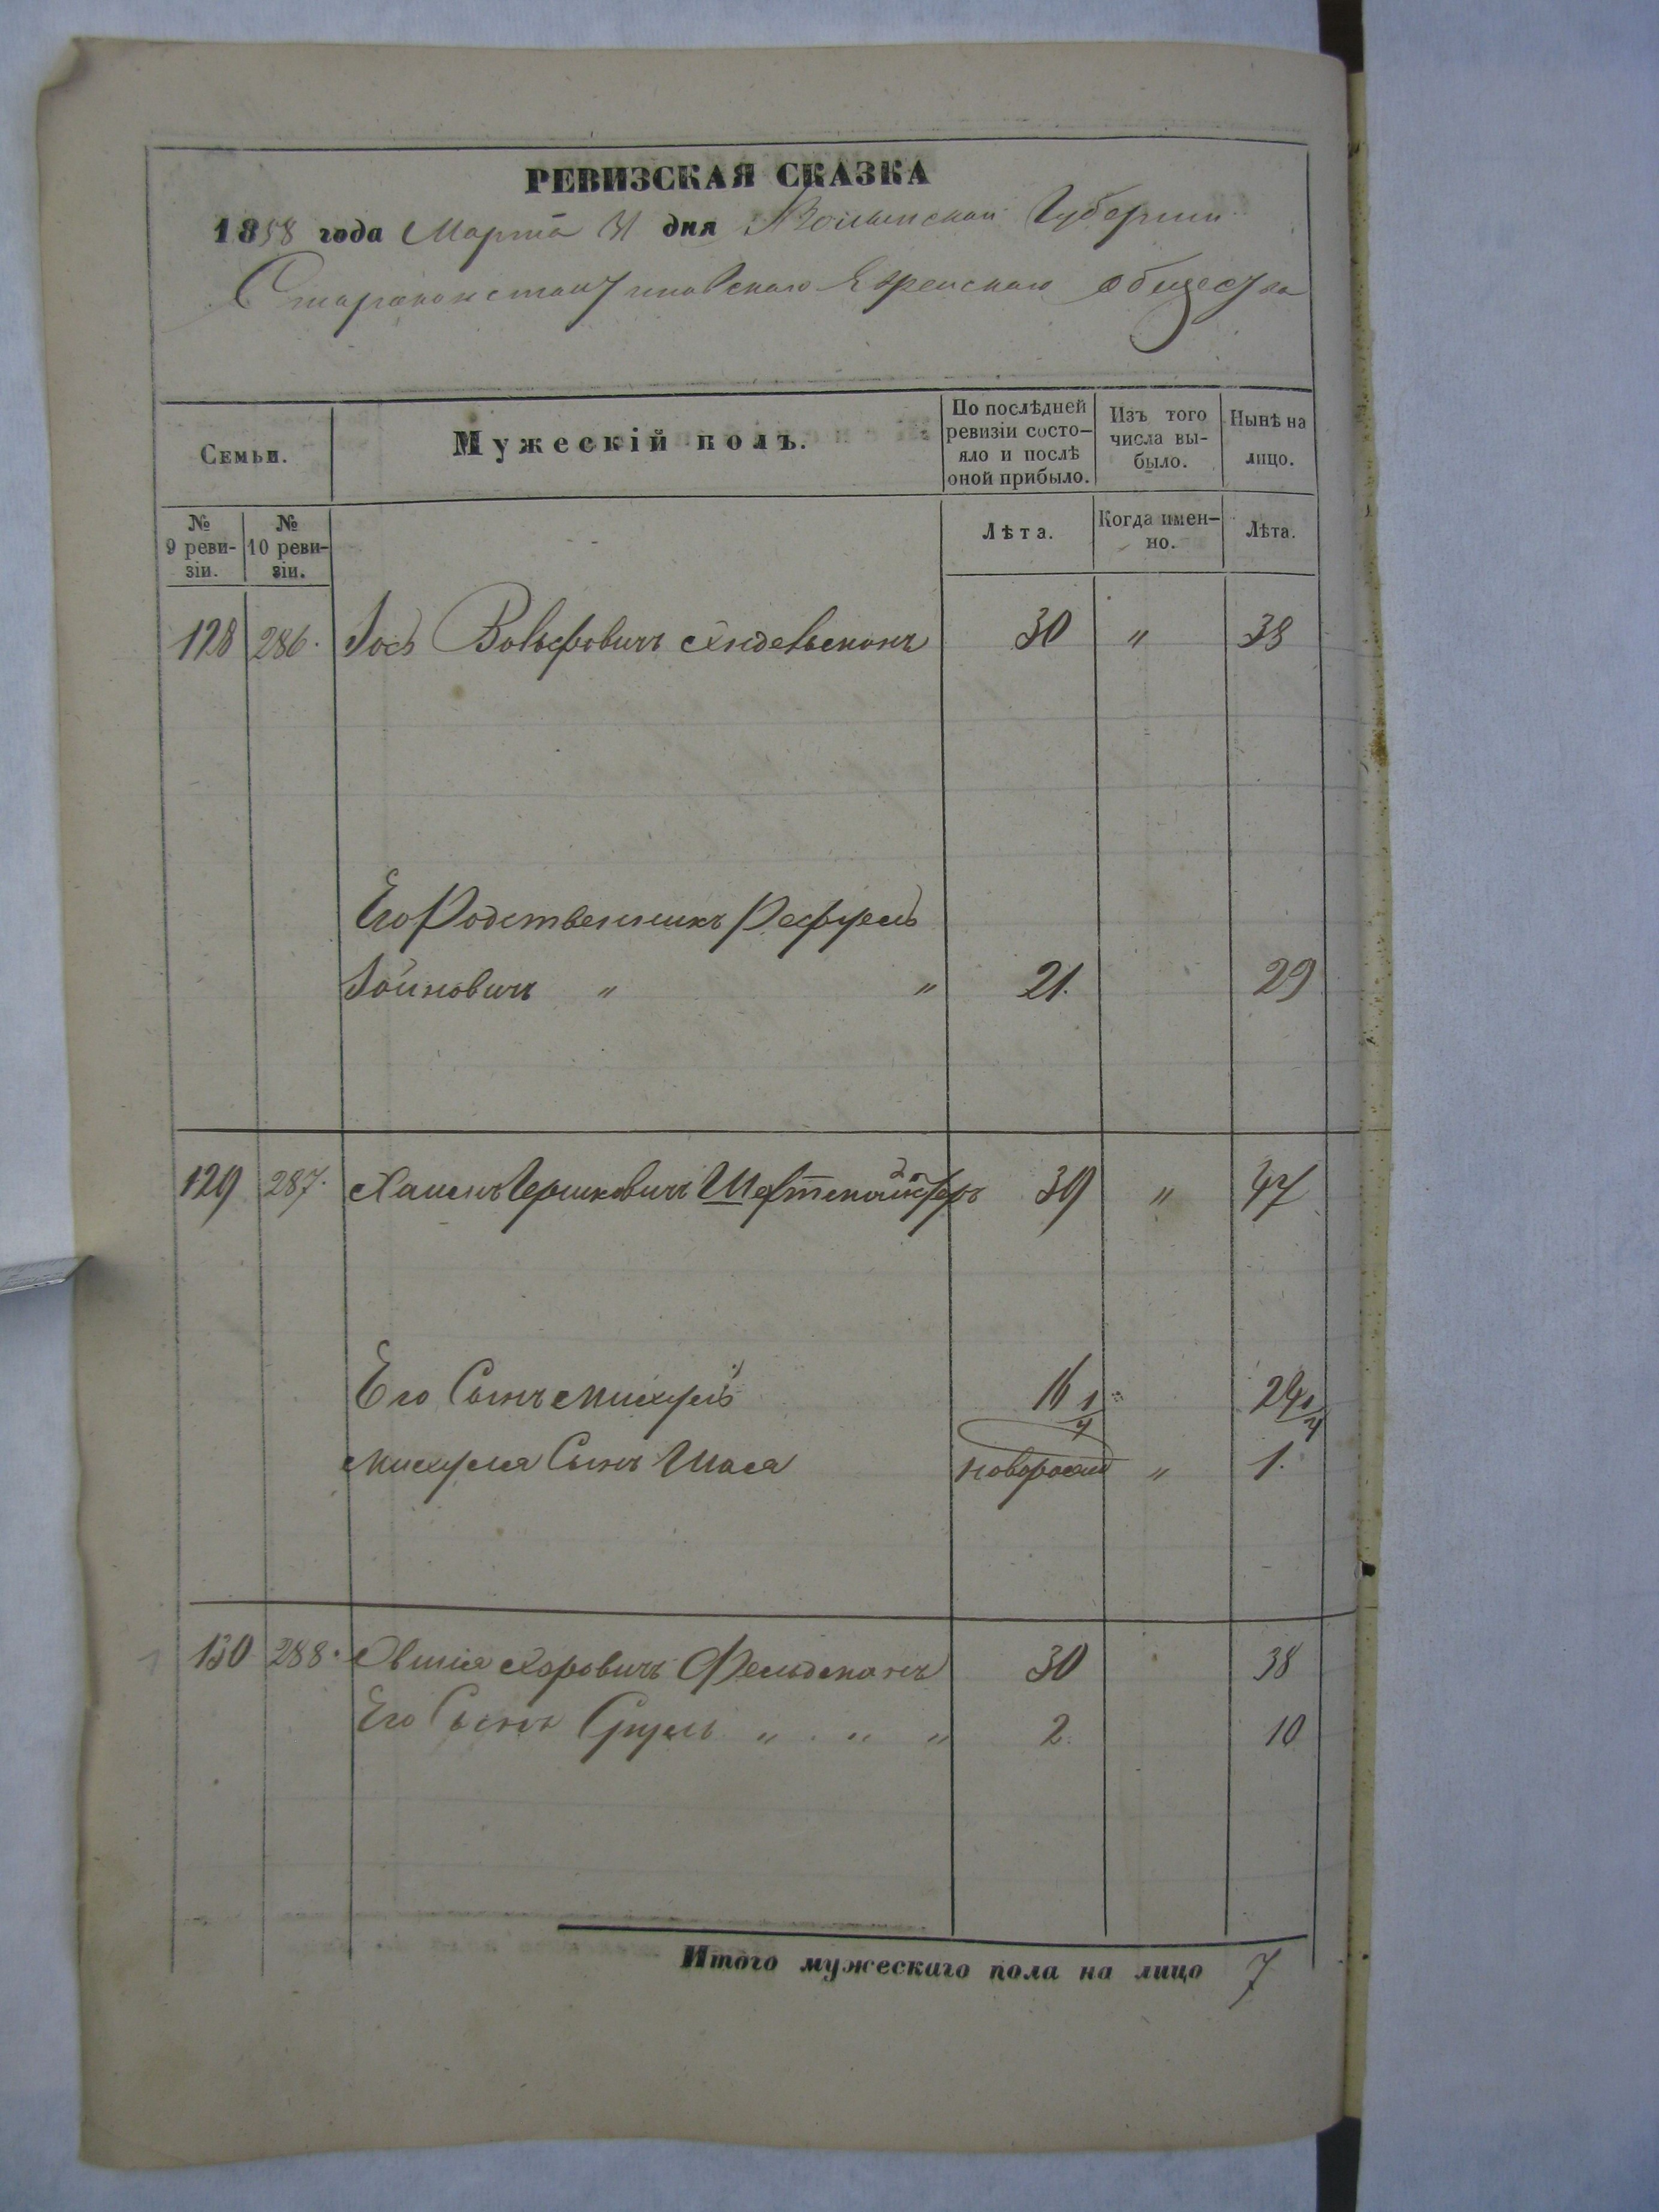 РЕВИЗСКАЯ СКАЗКА
1858 года Марта 31 дня Волынской Губернии
Староконстантиновскаго Еврейскаго общества
Семьи.
Мужескій полъ.
По послѣдней ревизіи состо-
яло и послѣ
оной прибыло.
Изъ того
числа вы-
было.
Нынѣ на
лицо.
№
9 реви-
зіи.
№
10 реви-
зіи.
Лѣта.
Когда имен-
но.
Лѣта.
128 286. Іось Вольфовичъ 30 " 38
Его Родственникъ Рафуель
Іойновичъ " " 21. 29
129 287. Хаимъ Гершковичъ 39 " 47
Его Сынъ Михуель 16 1/4 24 1/4
Михуеля Сынъ новорожд " 1.
130 288. Овшія Хоровичъ Фельдманъ 30 38
Его Сынъ Сруль " " " 2. 10
Итого мужескаго пола на лицо 7